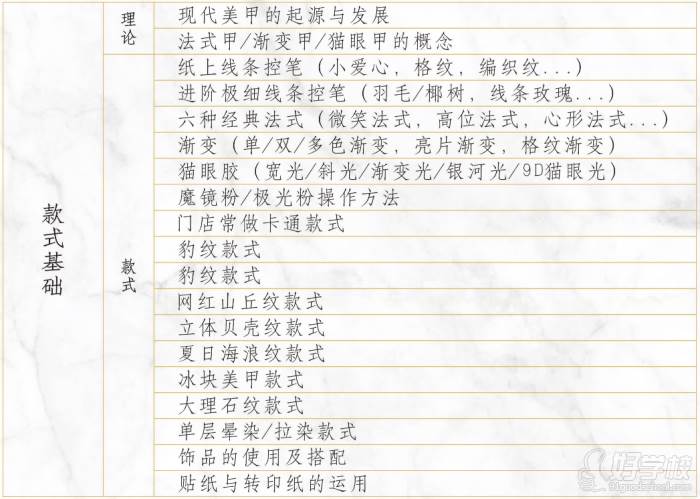 款式基础
理论
现代美甲的起源与发展
法式甲/渐变甲/猫眼甲的概念
款式
纸上线条控笔（小爱心，格纹，编织纹...）
进阶极细线条控笔（羽毛/椰树，线条玫瑰...）
六种经典法式（微笑法式，高位法式，心形法式...）
渐变（单/双/多色渐变，亮片渐变，格纹渐变）
猫眼胶（宽光/斜光/渐变光/银河光/9D猫眼光）
魔镜粉/极光粉操作方法
门店常做卡通款式
豹纹款式
豹纹款式
网红山丘纹款式
立体贝壳纹款式
夏日海浪纹款式
冰块美甲款式
大理石纹款式
单层晕染/拉染款式
饰品的使用及搭配
贴纸与转印纸的运用
好学校